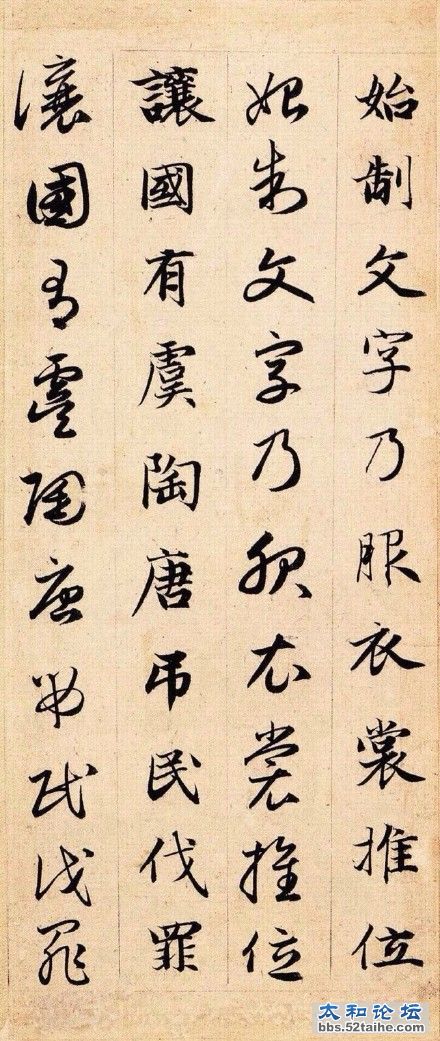 始制文字乃服衣裳推位
始制文字乃服衣裳推位
讓國有虞陶唐弔民伐罪
讓國有虞陶唐弔民伐罪
太和论坛
bbs.52taihe.com